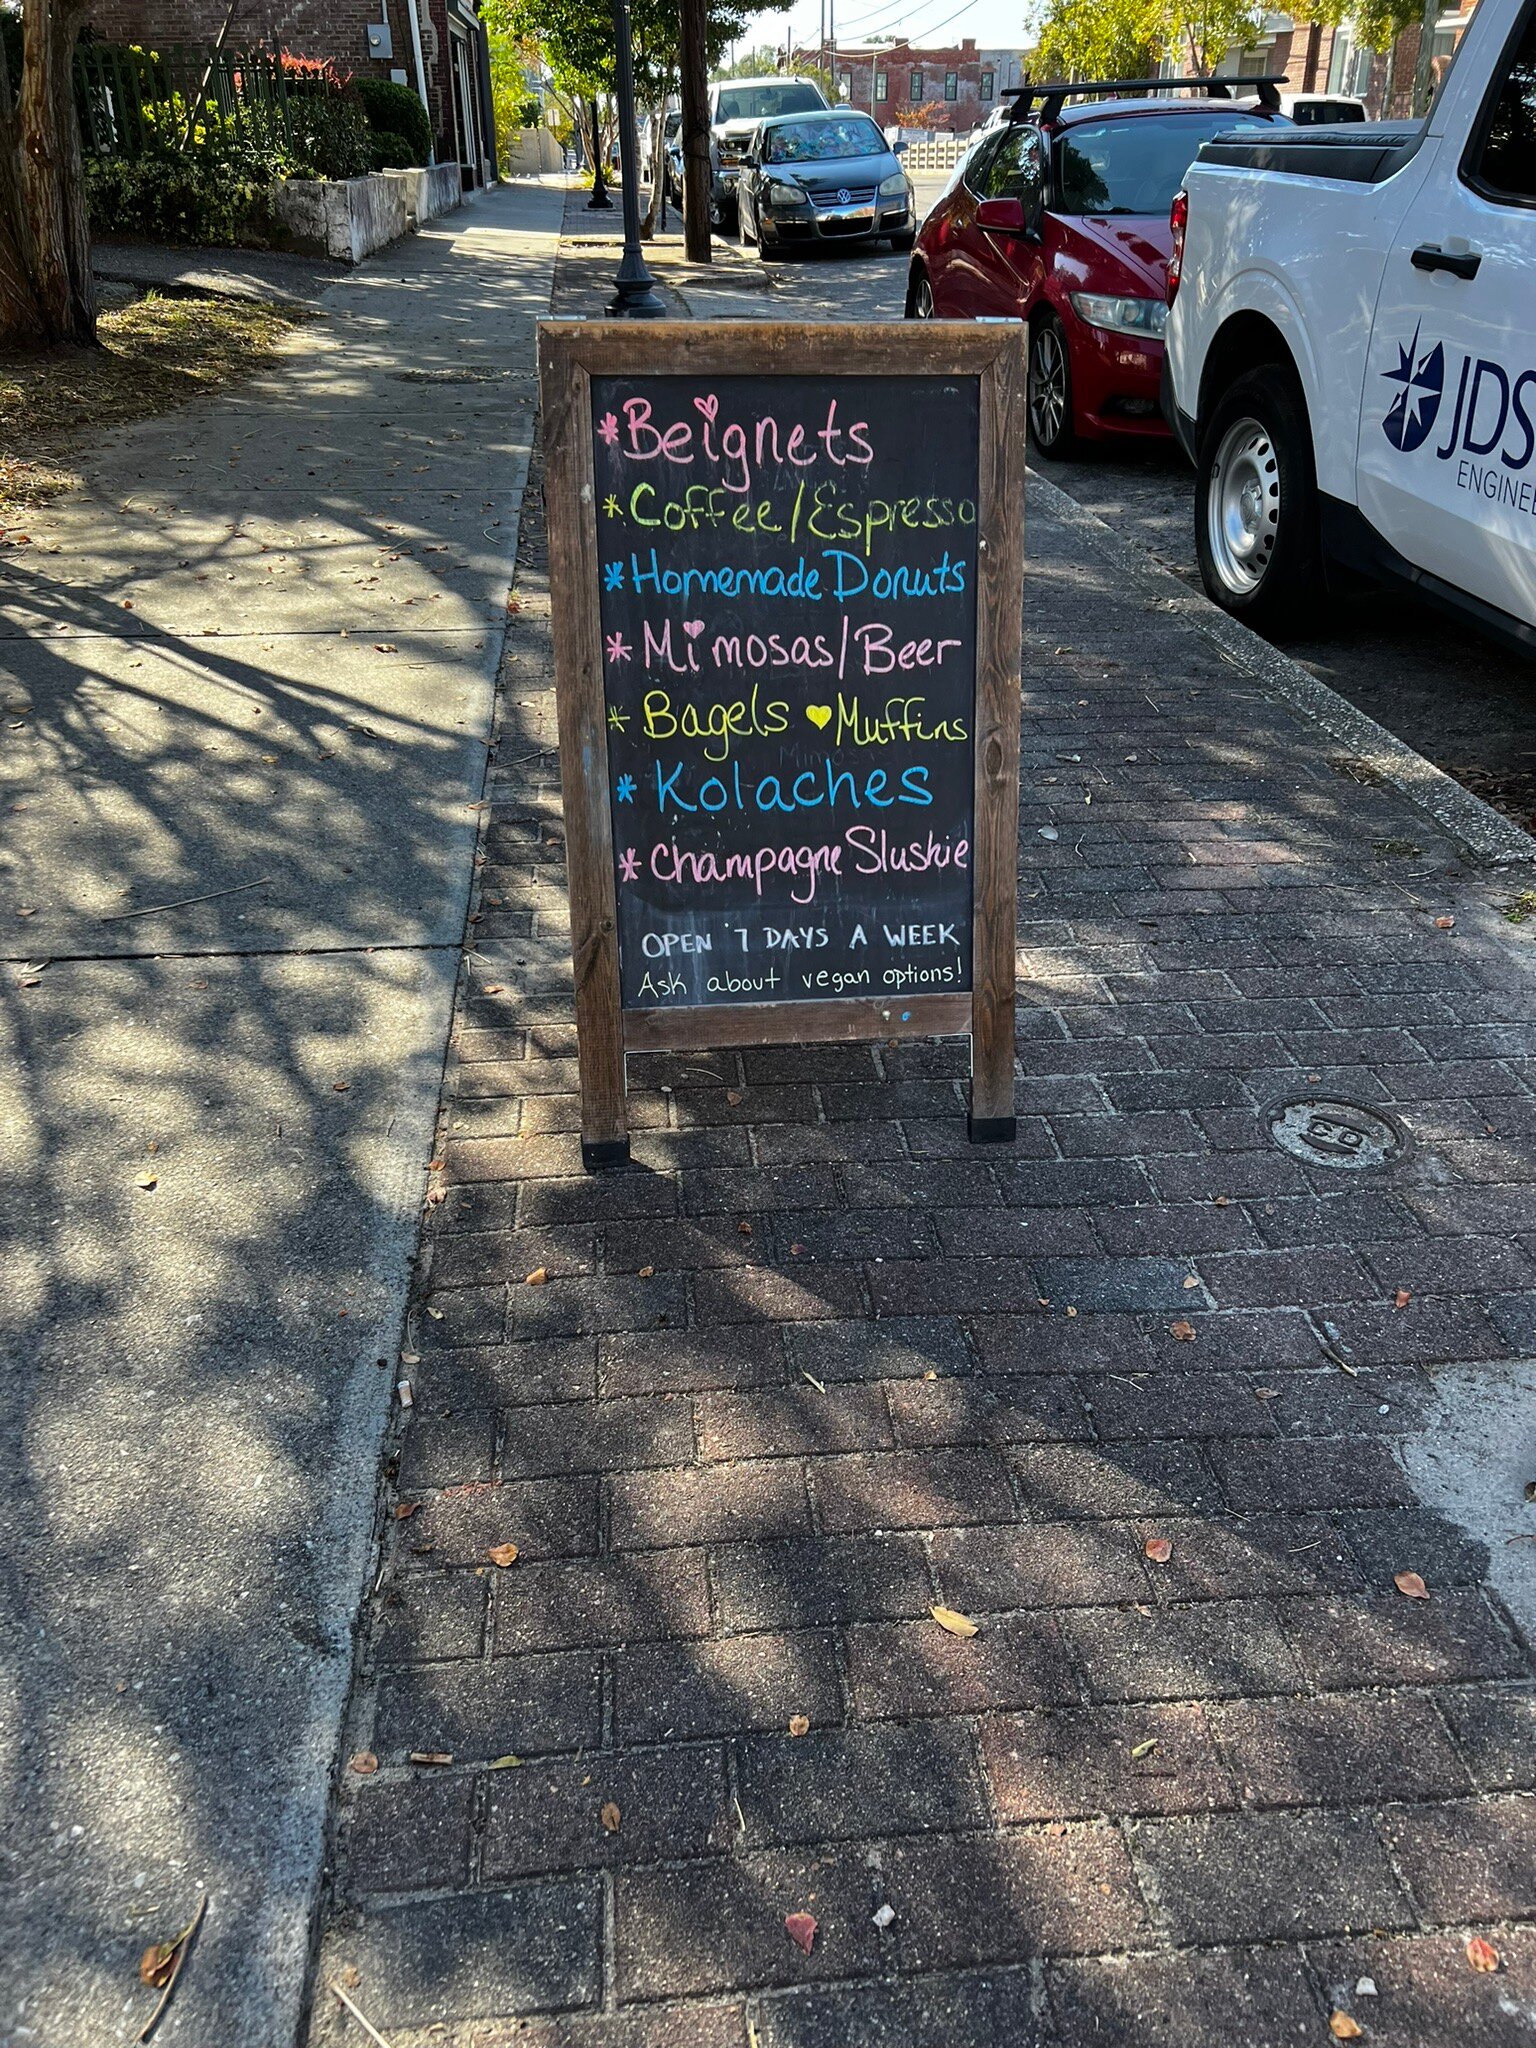 *Beignets
*Coffee/Espresso
*Homemade Donuts
*Mimosas/Beer
*Bagels ♥Muffins
*Kolaches
*Champagne Slushie
OPEN 7 DAYS A WEEK
Ask about vegan options!
JDS
ENGINEE
CO